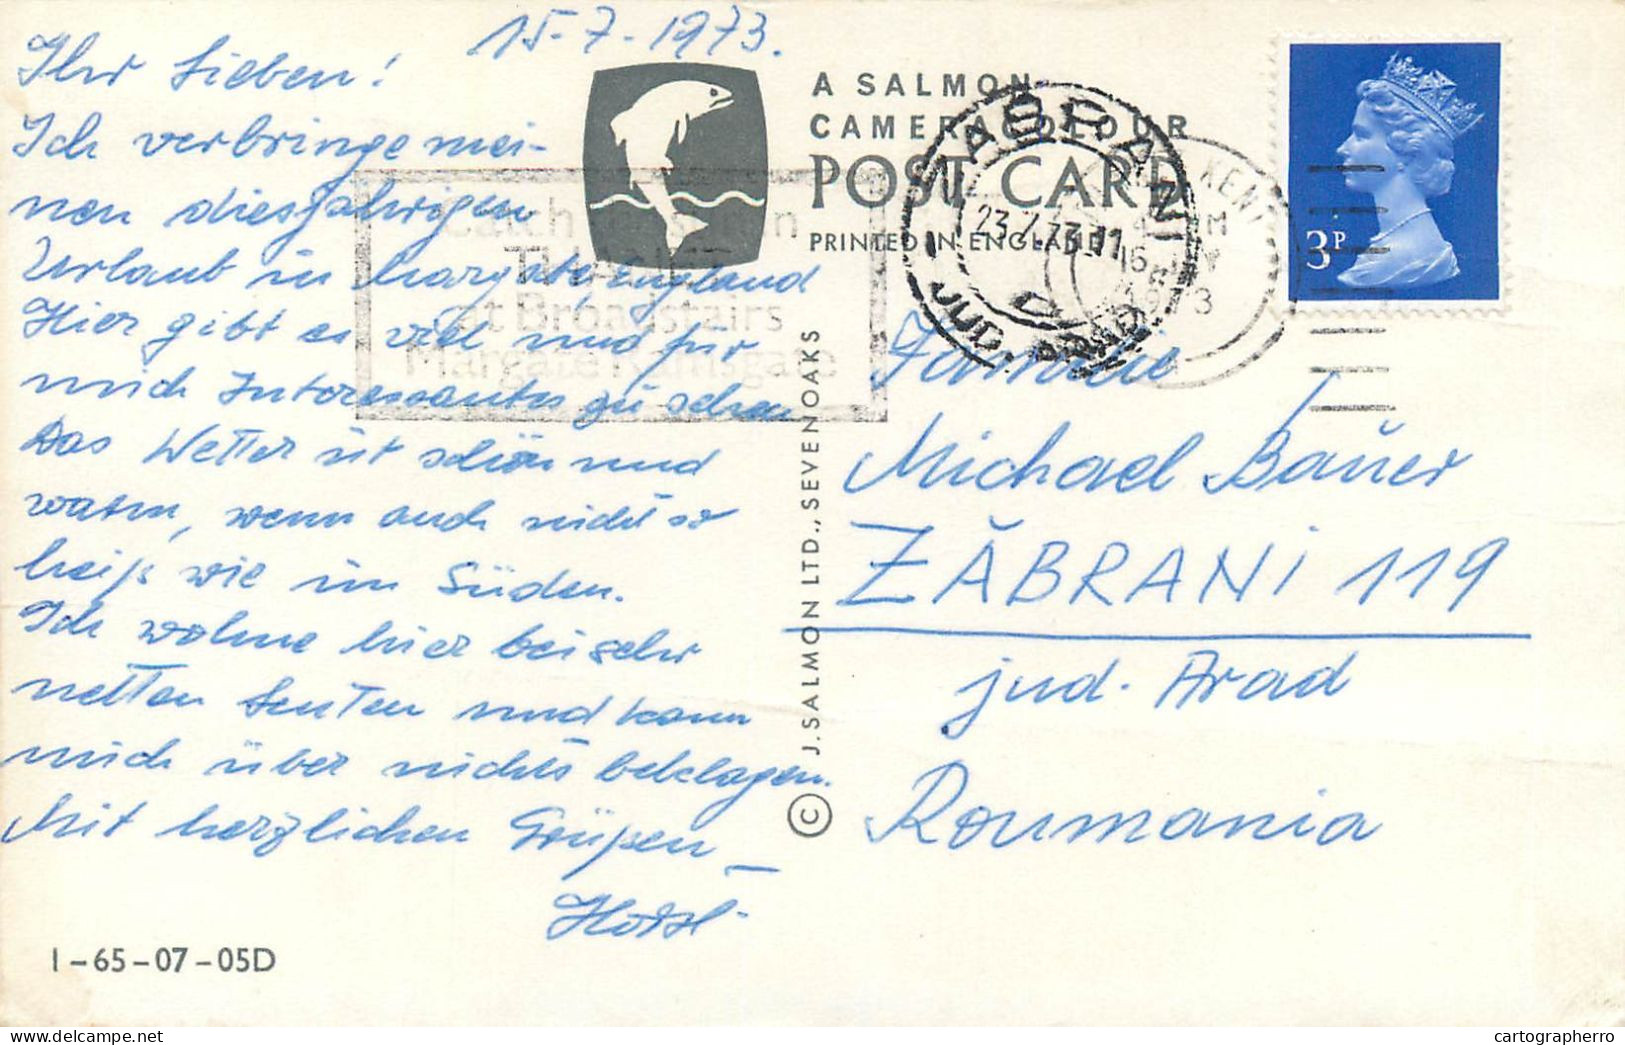 15-7-1973.
Ihr Lieben!
Ich verbringe mei-
nen diesjahrigen
Urlaub in Margate England
Hier gibt es viel und für
mich Interessantes zu sehen
Das Wetter ist schön und
warm, wenn auch nicht so
heiß wie im Süden.
Ich wohne hier bei sehr
netten Leuten und kann
mich über nichts beklagen.
Mit herzlichen Grüßen
I-65-07-05D
Catch
THANET
at Broadstairs
Margate Ramsgate
A SALMON
CAMERACOLOUR
POST CARD
PRINTED IN ENGLAND
© J. SALMON LTD., SEVENOAKS
23.7.73.11
JUD. ARAD
KENT
3P
Familie
Michael Bauer
ZĂBRANI 119
jud. Arad
Roumania
cartographerro